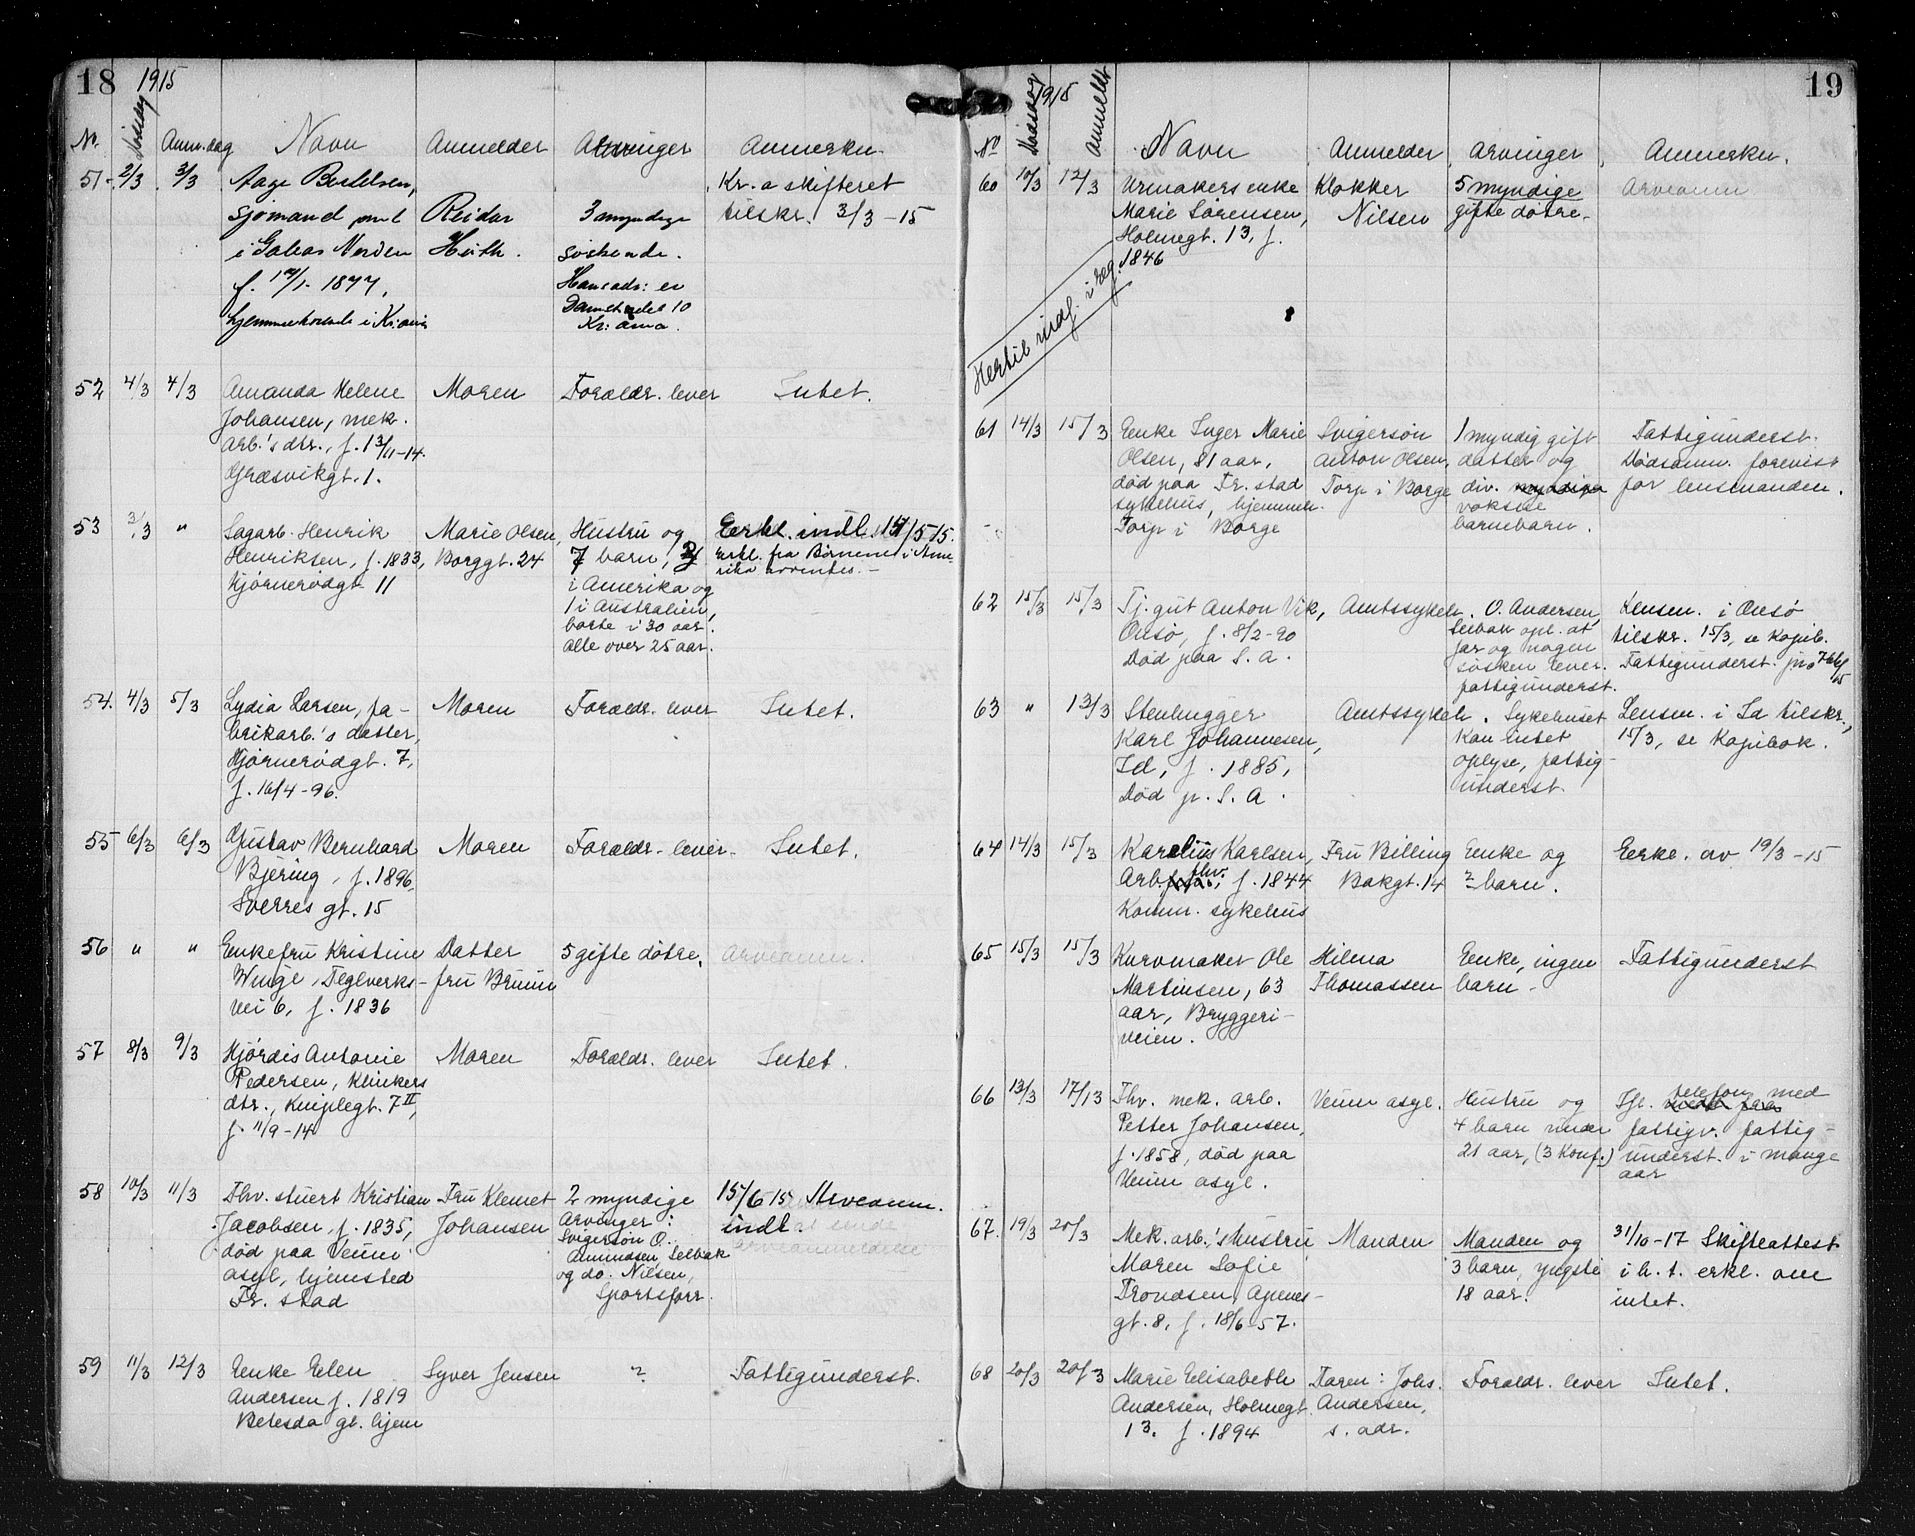 18 1915
No. Dødsdag Anm.dag Navn Anmelder Arvinger Anmerkn.
51. 2/3 3/3 Aage Bertelsen, Kr.a skifteret
sjømand Reidar 3 umyndige tilskr. 3/3-15
i Huth. søskende.
f. 1877, Hans adr: er
Damstredet 10
hjemmehørende i Kr.ania Kr:ania.
52 4/3 4/3 Amanda Helene Moren Forældr. lever Intet.
Johansen, mek.
arb.'s dtr., f. 13/11-14.
Græsvikgt. 1.
53 3/3 " Sagarb. Henrik Marie Olsen, Hustru og Erkl. indl. 15/5 15.
Henriksen, f. 1833, Borggt. 24 7 barn, 2 Erkl. fra Børnene i Ame-
Hjørnerødgt 11 i Amerika og rika ventes. -
1 i Australien,
borte i 30 aar.
Alle over 25 aar.
54. 4/3 5/3 Lydia Larsen, fa- Moren Forældr. lever Intet.
brikarb.'s datter,
Hjørnerødgt. 7,
f. 16/4-96.
55 6/3 6/3 Gustav Bernhard Moren Forældr. lever. Intet.
Bjering, f. 1896.
Sverres gt. 15
56 " " Enkefru Kristine Datter 5 gifte døtre. Arveanm.
Winge, Teglverks- fru Bruun
vei 6, f. 1836
57 8/3 9/3 Hjørdis Antonie Moren Forældr. lever Intet.
Pedersen, Klinkers
dtr., Kniplegt. 7 II,
f. 11/9-14
58 10/3 11/3 Fhv. stuert Kristian Fru Klemet 2 myndige 15/6 15 Arveanm.
Jacobsen, f. 1835, Johansen Arvinger: indl.
død paa Veum Svigersøn O.
asyl, hjemsted Amundsen, Selbak
Fr. stad og do. Nilsen,
Sportsforr.
59 11/3 12/3 Enke Elen Syver Jensen ? Fattigunderst.
Andersen f. 1819
Betesda gl. hjem
1915 19
No Dødsdag Anmeldt Navn Anmelder Arvinger Anmerkn.
60 10/3 12/3 Urmakers enke Klokker 5 myndige Arveanm
Marie Sørensen, Nilsen gifte døtre.
Holmegt. 13, f.
1846
Hertil indf. i reg.
61 14/3 15/3 Enke Inger Marie Svigersøn 1 myndig gift Fattigunderst.
Olsen, 81 aar, Anton Olsen, datter og Dødsanm. forevist
død paa Fr. stad Torp i Borge div. myndige for lensmanden.
sykehus, hjemmeh. voksne
Torp i Borge barnebarn.
62 15/3 15/3 Tj.gut Anton Vik, Amtssykeh. O. Andersen, Lensm. i Onsø
Onsø, f. 8/2-90 Selbak opl. at tilskr. 15/3, se Kopib.
Død paa S. A. far og nogen Fattigunderst.
søsken lever.
fattigunderst.
63 " 13/3 Stenhugger Amtssykeh. Sykehuset Lensm. i Id tilskr.,
Karl Johannesen, kan intet 15/3, se Kopibok.
Id, f. 1885, oplyse, fattig-
Død p. S. A. underst.
64 14/3 15/3 Karelius Karlsen, Fru Billing Enke og Erkl. av 19/3-15
Arb. fhv., f. 1844 Bakgt. 14 ? barn.
Komm. sykehus
65 15/3 15/3 Kurvmaker Ole Hilena Enke, ingen Fattigunderst
Martinsen, 63 Thomassen barn.
aar, Bryggeri-
veien.
66 13/3 17/3 Fhv. mek. arb. Veum asyl. Hustru og Ifl. telefon med
Petter Johansen, 4 barn under fattigv. fattig-
f. 1858, død paa 21 aar, (3 konf.) underst. i mange
Veum asyl. aar
67. 19/3 20/3 Mek. arb.,'s hustru Manden Manden og 31/10-17 Skifteattest
Maren Sofie 3 barn, yngste i h. t. erkl. om
Trondsen, Apenes- 18 aar. intet.
gt. 8, f. 18/6-57.
68 20/3 20/3 Marie Elisabeth Faren: Johs. Forældr. lever Intet.
Andersen, Holmegt. Andersen,
13. f. 1894 s. adr.